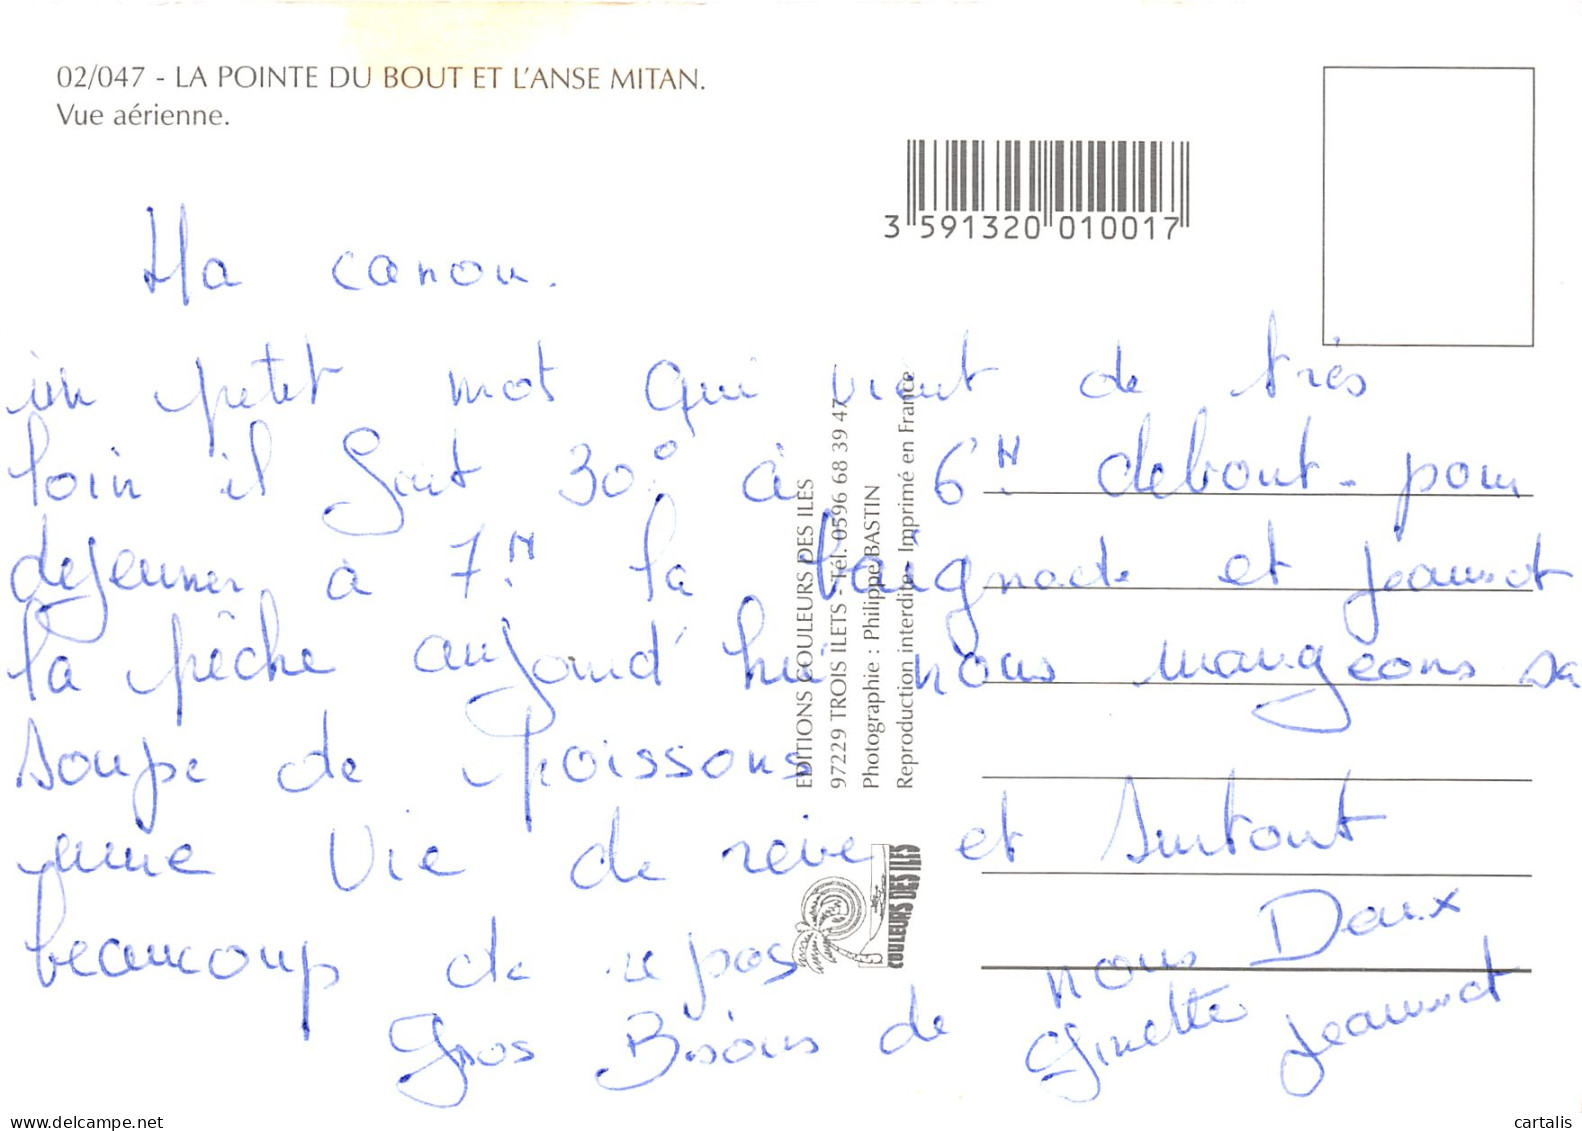 02/047 - LA POINTE DU BOUT ET L'ANSE MITAN.
Vue aérienne.
3 591320 010017
Ma canou.
un petit mot qui vient de très
loin il fait 30° à 6H debout - pour
dejeuner à 7H la baignade et jeannot
la pêche aujourd'hui nous mangeons sa
soupe de poissons
une vie de rève et surtout
beaucoup de repos
Gros Bisous de nous Deux
Ginette Jeannot
EDITIONS COULEURS DES ILES
97229 TROIS ILETS - Tél. 0596 68 39 47
Photographie : Philippe BASTIN
Reproduction interdite - Imprimé en France
COULEURS DES ILES
delcampe.net
cartalis